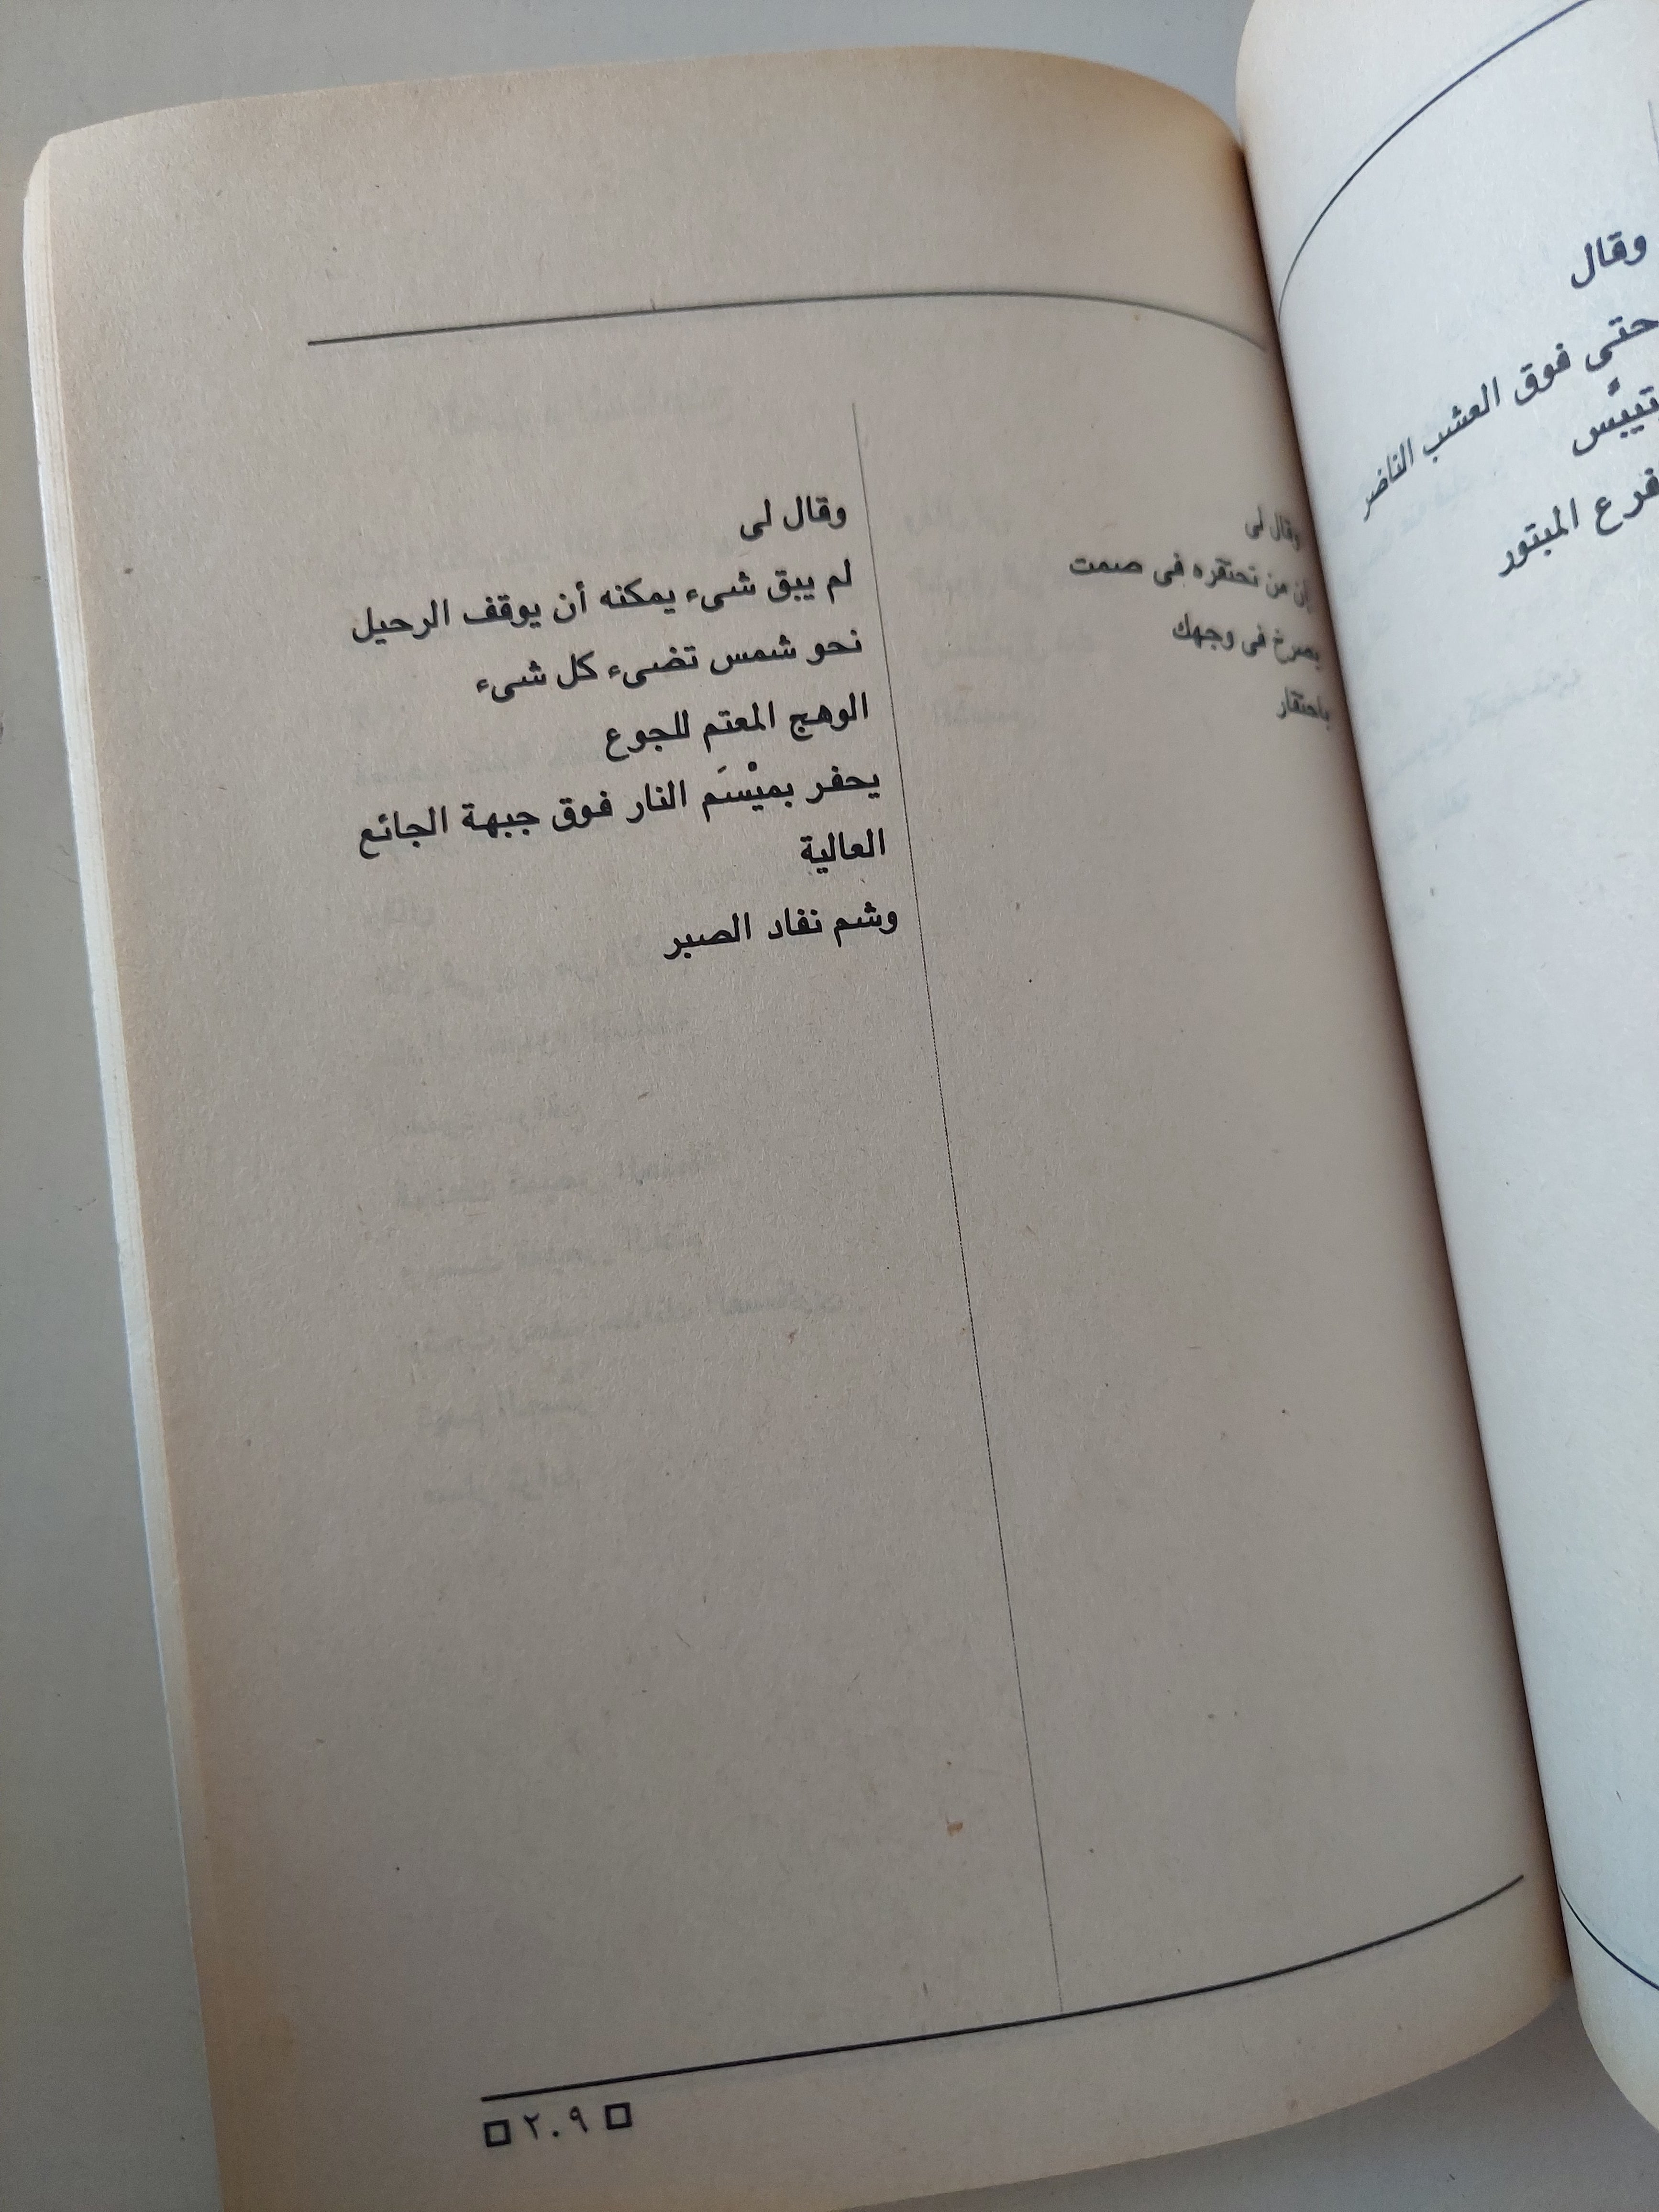 وقال
حتى فوق العشب الناضر
تيبَّس
فرع المبتور
وقال لى
إن من تحتقره فى صمت
يصرخ فى وجهك
باحتقار
وقال لى
لم يبق شىء يمكنه أن يوقف الرحيل
نحو شمس تضىء كل شىء
الوهج المعتم للجوع
يحفر بميْسَم النار فوق جبهة الجائع
العالية
وشم نفاد الصبر
٢٠٩